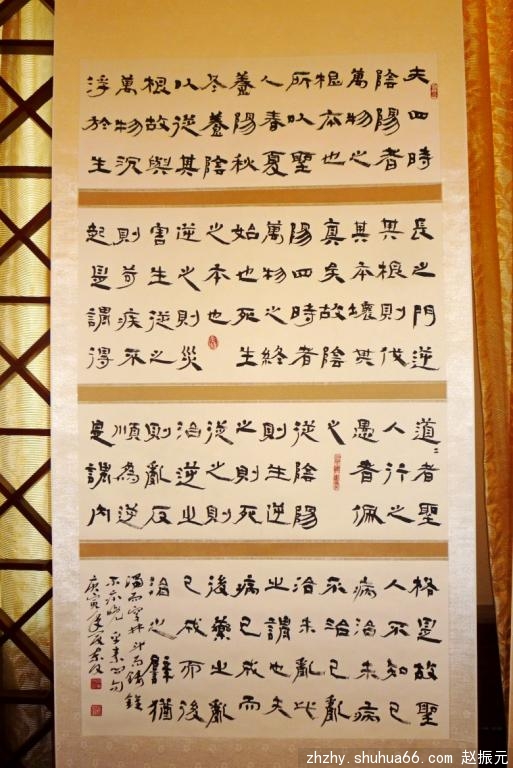 夫四時
陰陽者
萬物之
根本也
所以聖
人春夏
養陽秋
冬養陰
以從其
根故與
萬物沉
浮於生
長之門逆
其根則伐
其本壞其
真矣故陰
陽四時者
萬物之終
始也死生
之本也
逆之則災
害生從之
則苛疾不
起是謂得
道〻者聖
人行之
愚者佩
之
從陰陽
則生逆
之則死
從之則
治逆之
則亂反
順為逆
是謂內
格是故聖
人不治已
病治未病
不治已亂
治未亂此
之謂也夫
病已成而
後藥之亂
已成而後
治之譬猶
渴而穿井鬥而鑄錐
不亦晚乎素問句
庚寅
zhzhy.shuhua66.com 赵振元